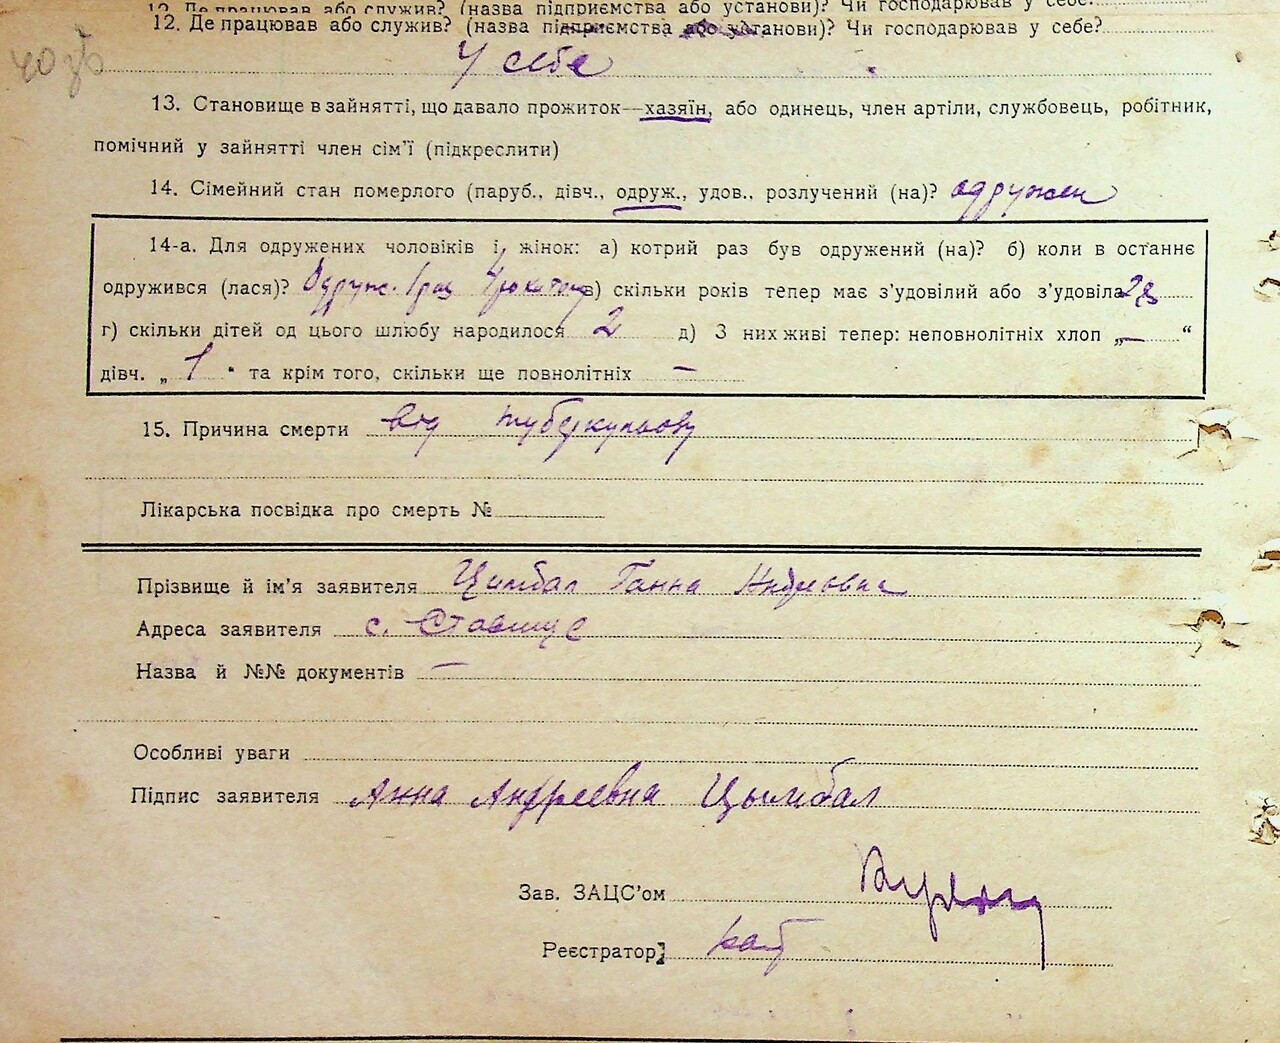 12. Де працював або служив? (назва підприємства або установи)? Чи господарював у себе?
12. Де працював або служив? (назва підприємства або установи)? Чи господарював у себе?
У себе
13. Становище в зайнятті, що давало прожиток—хазяїн, або одинець, член артіли, службовець, робітник,
помічний у зайнятті член сім'ї (підкреслити)
14. Сімейний стан померлого (паруб., дівч., одруж., удов., розлучений (на)? одружен
14-а. Для одружених чоловіків і жінок: а) котрий раз був одружений (на)? б) коли в останнє
одружився (лася)? Одруж. 1 раз в) скільки років тепер має з'удовілий або з'удовіла 28
г) скільки дітей од цього шлюбу народилося 2 д) З них живі тепер: неповнолітніх хлоп „—“
дівч. „1“ та крім того, скільки ще повнолітніх —
15. Причина смерти від туберкульозу
Лікарська посвідка про смерть №
Прізвище й ім'я заявителя Цимбал Ганна Андреовна
Адреса заявителя с. Ставище
Назва й №№ документів —
Особливі уваги
Підпис заявителя Анна Андреевна Цымбал
Зав. ЗАЦС'ом
Реєстратор